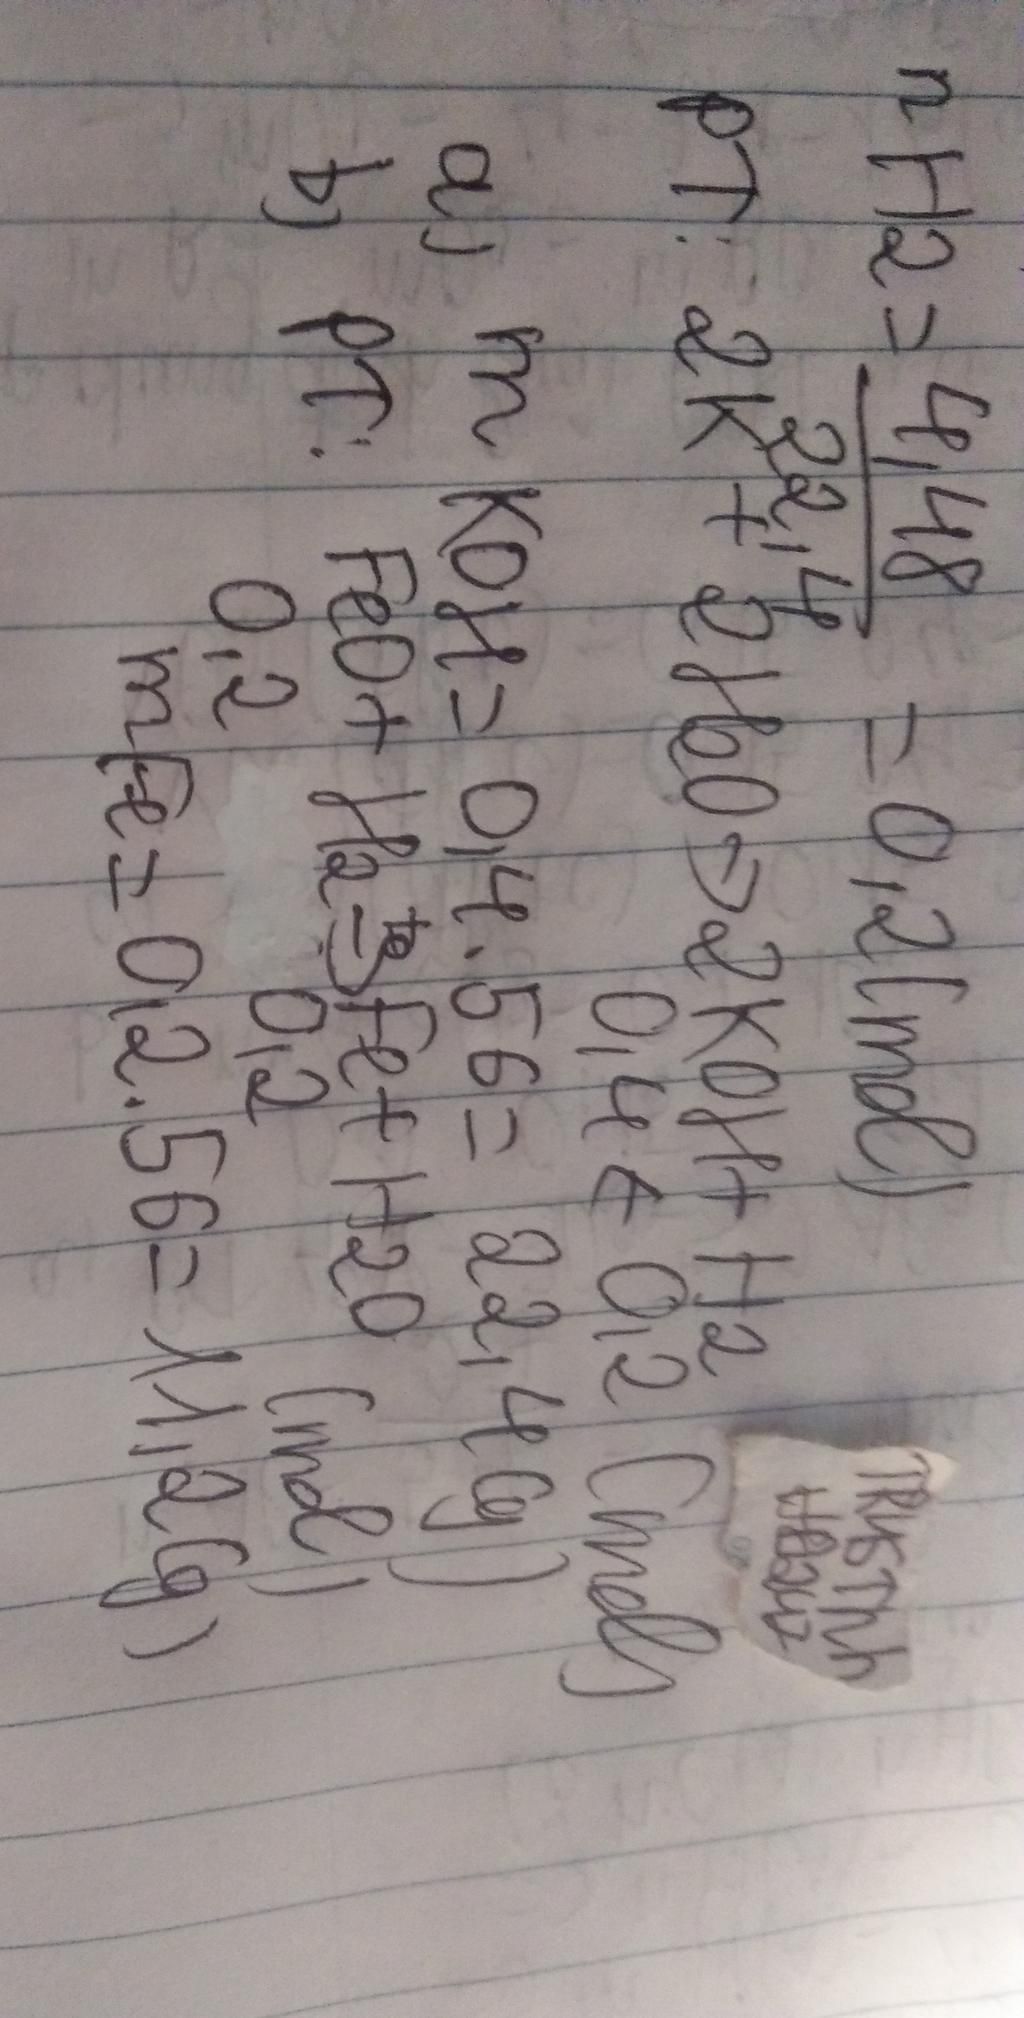 nH2 = 4,48 / 22,4 = 0,2 (mol)
PT: 2K + 2H2O -> 2KOH + H2
0,4 ← 0,2 (mol)
a) mKOH = 0,4.56 = 22,4 (g)
b) PT: FeO + H2 -to-> Fe + H2O
0,2 0,2 (mol)
mFe = 0,2.56 = 11,2 (g)